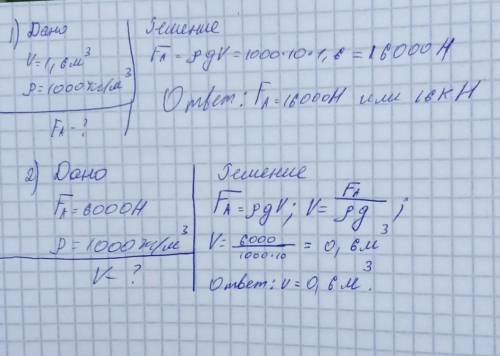 1) Дано
V=1,6м³
ρ=1000кг/м³
Fᴀ-?
Решение
Fᴀ=ρgV=1000·10·1,6=16000Н
Ответ: Fᴀ=16000Н или 16кН
2) Дано
Fᴀ=6000Н
ρ=1000кг/м³
V-?
Решение
Fᴀ=ρgV; V=Fᴀ/ρg;
V=6000/1000·10=0,6м³
Ответ: v=0,6м³.